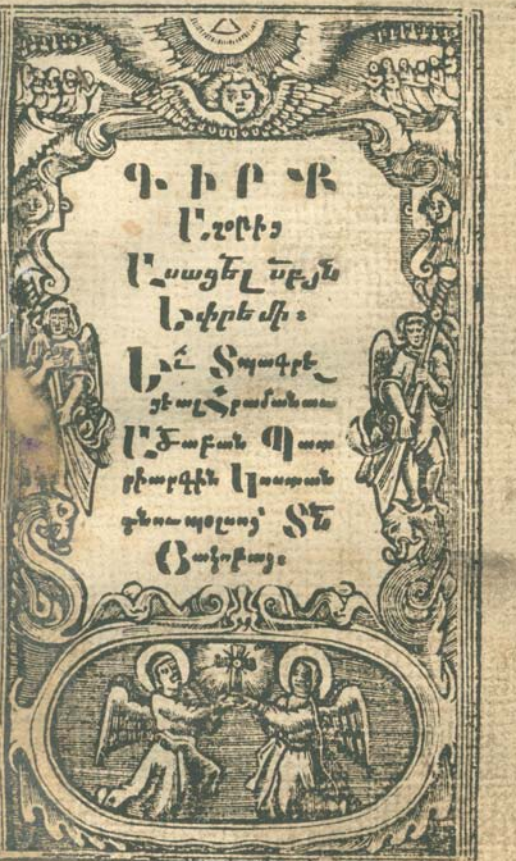 Գ Ի Ր Ք
Աղօթից
Ասացել սրբյն
Եփրեմի ։
Եւ Տպագրե
ցեալ Հրամանաւ
ԱԾաբան Պատ
րիարգին Կոստան
դնուպօլսոյ՝ ՏՆ
Յակոբայ։